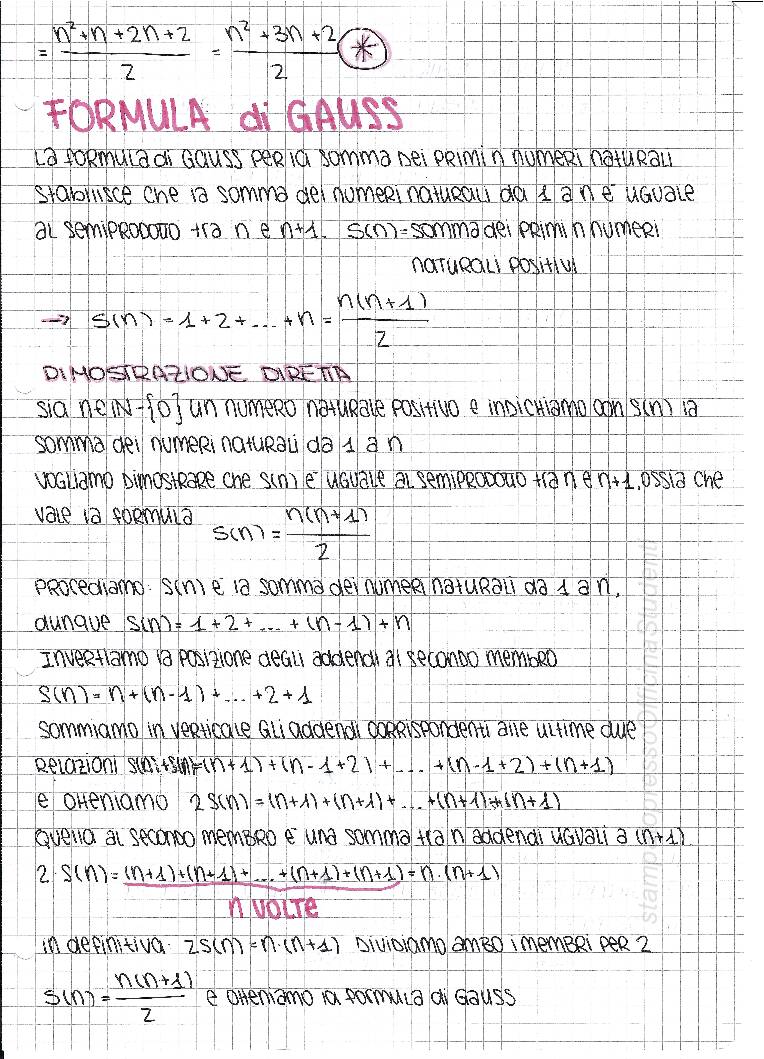 = n²+n+2n+2 / 2 = n²+3n+2 / 2 *
FORMULA di GAUSS
La formula di Gauss per la somma dei primi n numeri naturali
stabilisce che la somma dei numeri naturali da 1 a n è uguale
al semiprodotto tra n e n+1. S(n)=somma dei primi n numeri
naturali positivi
→ S(n) = 1+2+...+n = n(n+1) / 2
DIMOSTRAZIONE DIRETTA
Sia n∈ℕ-{0} un numero naturale positivo e indichiamo con S(n) la
somma dei numeri naturali da 1 a n
Vogliamo dimostrare che S(n) è uguale al semiprodotto tra n e n+1, ossia che
vale la formula S(n) = n(n+1) / 2
Procediamo. S(n) è la somma dei numeri naturali da 1 a n,
dunque S(n)= 1+2+...+(n-1)+n
Invertiamo la posizione degli addendi al secondo membro
S(n)= n+(n-1)+...+2+1
Sommiamo in verticale gli addendi corrispondenti alle ultime due
relazioni S(n)+S(n)=(n+1)+(n-1+2)+...+(n-1+2)+(n+1)
e otteniamo 2S(n)=(n+1)+(n+1)+...+(n+1)+(n+1)
Quella al secondo membro è una somma tra n addendi uguali a (n+1)
2·S(n)=(n+1)+(n+1)+...+(n+1)+(n+1)=n·(n+1)
n VOLTE
in definitiva· 2S(n)=n·(n+1) Dividiamo ambo i membri per 2
S(n)= n(n+1) / 2 e otteniamo la formula di Gauss
stampatopressoOfficinaStudenti